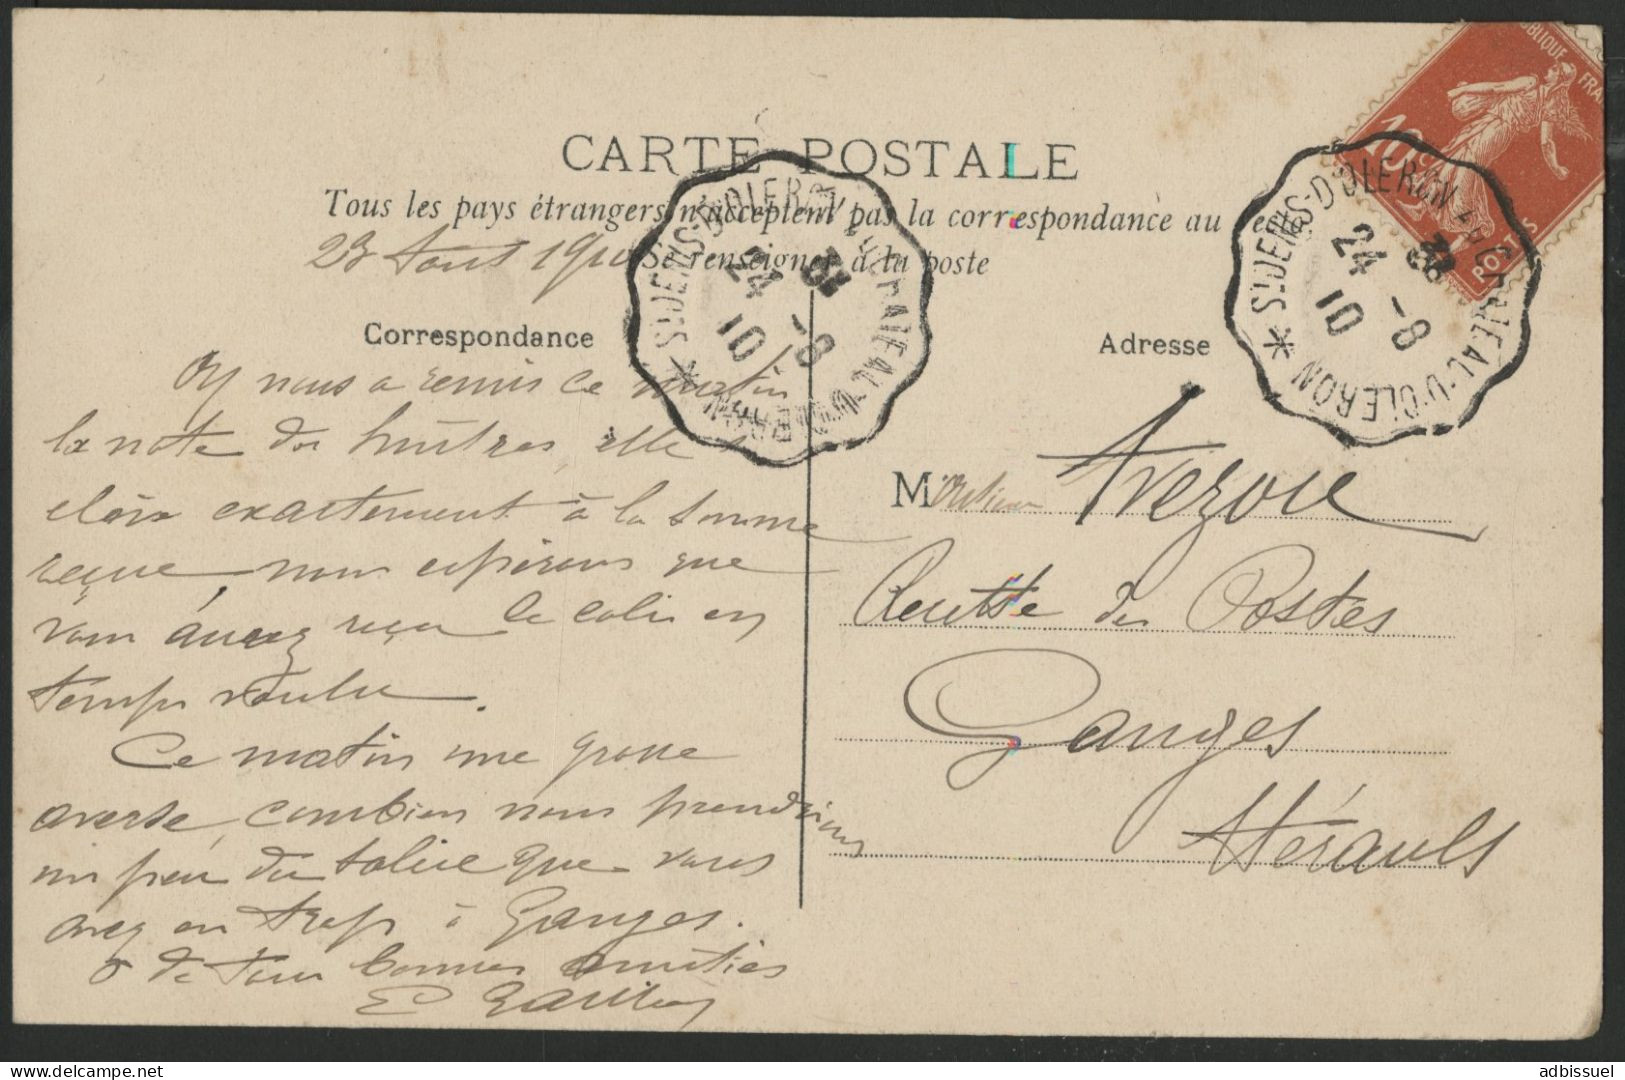 CARTE POSTALE
Tous les pays étrangers n'acceptent pas la correspondance au recto
Se renseigner à la poste
23 Aout 1910
Correspondance
Adresse
On nous a remis ce matin
la note des huîtres, elle
exactement à la somme
reçue, nous espérons que
vous avez reçu le colis en
temps voulu.
Ce matin une grosse
averse, combien nous prendrions
un peu du soleil que vous
avez en trop à Ganges.
de tous bonnes amitiés
E
Monsieur
Recette des Postes
Ganges
Hérault
RÉPUBLIQUE FRA
10 c
POSTES
ST DENIS-D'OLERON AU CHATEAU-D'OLERON *
24 -8
10
ST DENIS-D'OLERON AU CHATEAU-D'OLERON *
24 -8
10
adbissuel